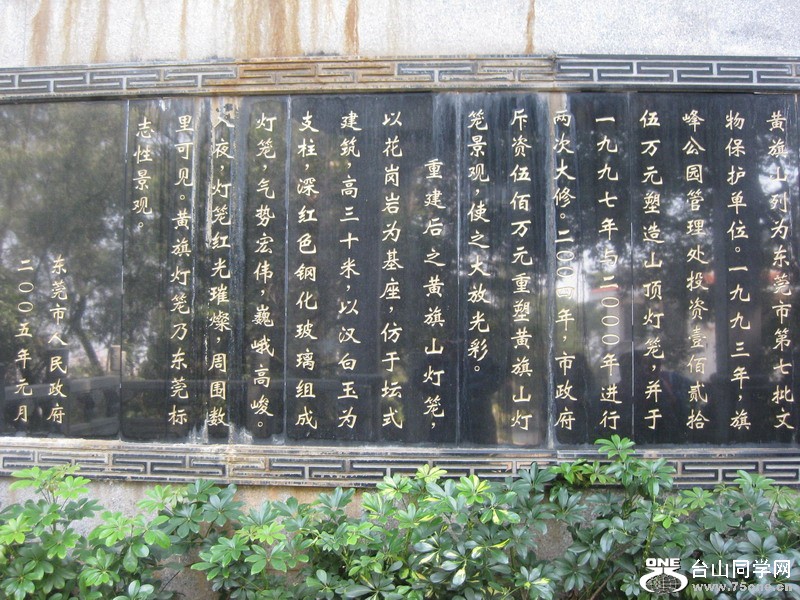 黄旗山列为东莞市第七批文
物保护单位。一九九三年，旗
峰公园管理处投资壹佰贰拾
伍万元塑造山顶灯笼，并于
一九九七年与二〇〇〇年进行
两次大修。二〇〇四年，市政府
斥资伍佰万元重塑黄旗山灯
笼景观，使之大放光彩。
重建后之黄旗山灯笼，
以花岗岩为基座，仿于坛式
建筑，高三十米，以汉白玉为
支柱，深红色钢化玻璃组成
灯笼，气势宏伟，巍峨高峻。
入夜，灯笼红光璀燦，周围数
里可见。黄旗灯笼乃东莞标
志性景观。
东莞市人民政府
二〇〇五年元月
ONE
75
台山同学网
www.75one.cn